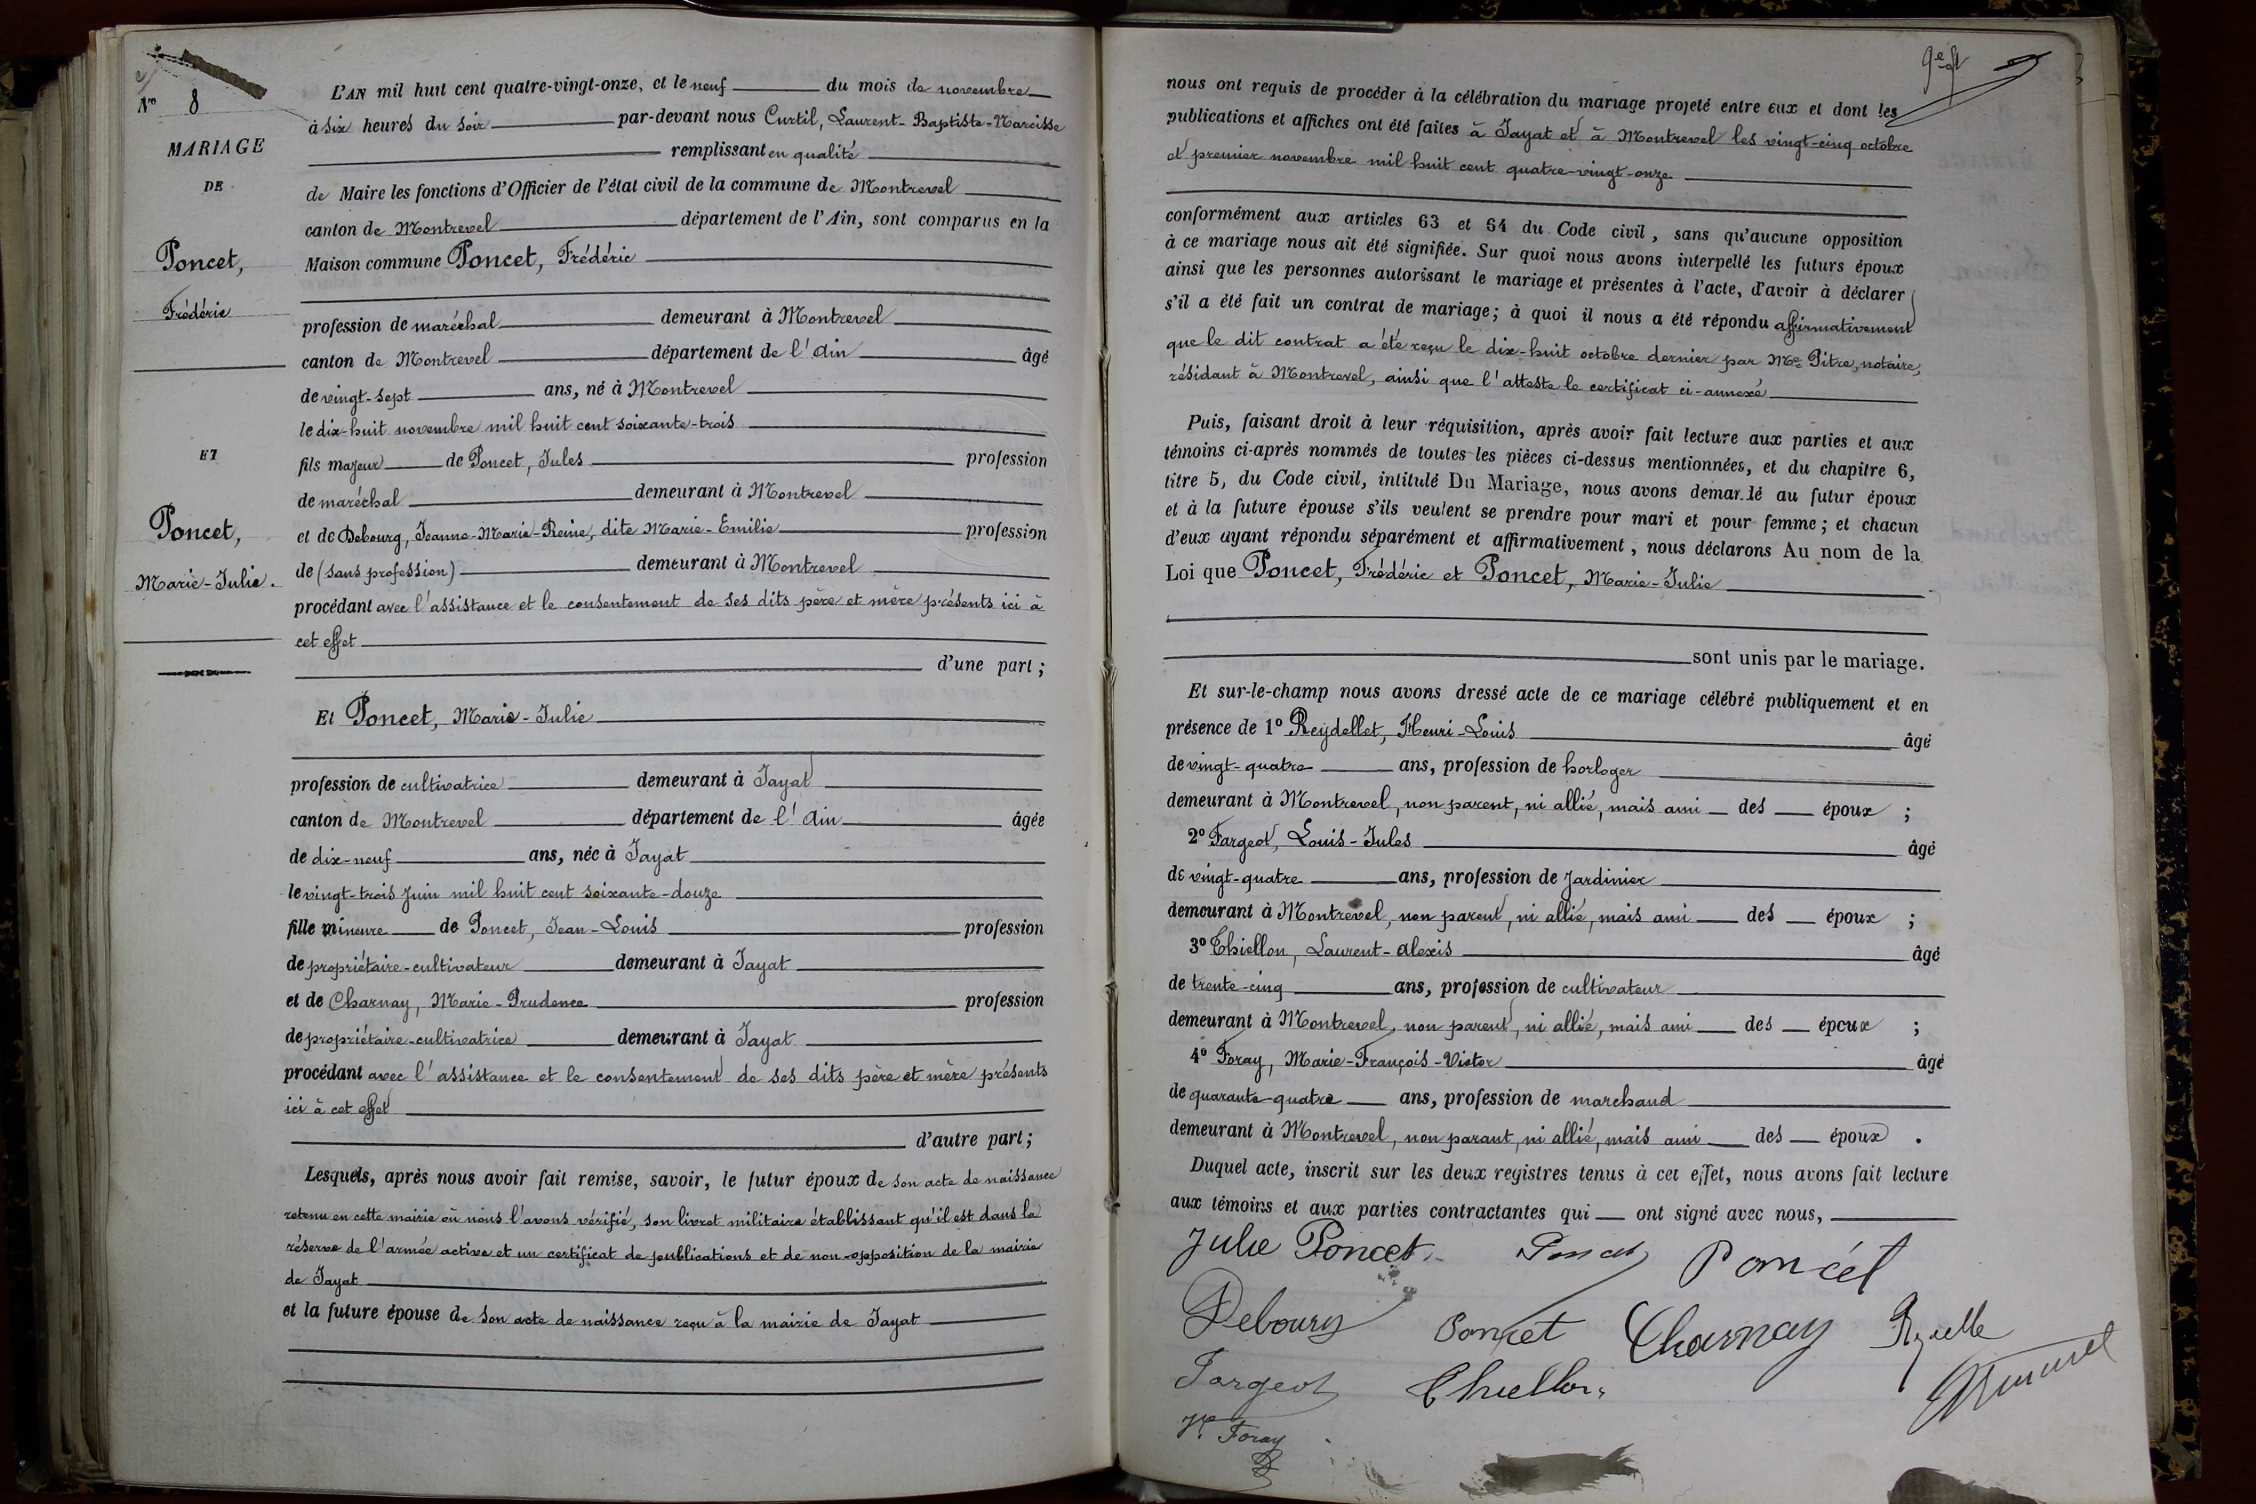 N° 8
MARIAGE
DE
Poncet,
Frédéric
ET
Poncet,
Marie-Julie.
L'AN mil huit cent quatre-vingt-onze, et le neuf du mois de novembre
à six heures du soir par-devant nous Curtil, Laurent-Baptiste-Narcisse
remplissant en qualité
de Maire les fonctions d'Officier de l'état civil de la commune de Montrevel
canton de Montrevel département de l'Ain, sont comparus en la
Maison commune Poncet, Frédéric
profession de maréchal demeurant à Montrevel
canton de Montrevel département de l'Ain âgé
de vingt-sept ans, né à Montrevel
le dix-huit novembre mil huit cent soixante-trois
fils majeur de Poncet, Jules profession
de maréchal demeurant à Montrevel
et de Debourg, Jeanne-Marie-Reine, dite Marie-Emilie profession
de (sans profession) demeurant à Montrevel
procédant avec l'assistance et le consentement de ses dits père et mère présents ici à
cet effet
d'une part;
Et Poncet, Marie-Julie
profession de cultivatrice demeurant à Jayat
canton de Montrevel département de l'Ain âgée
de dix-neuf ans, née à Jayat
le vingt-trois juin mil huit cent soixante-douze
fille mineure de Poncet, Jean-Louis profession
de propriétaire-cultivateur demeurant à Jayat
et de Charnay, Marie-Prudence profession
de propriétaire-cultivatrice demeurant à Jayat
procédant avec l'assistance et le consentement de ses dits père et mère présents
ici à cet effet
d'autre part;
Lesquels, après nous avoir fait remise, savoir, le futur époux de son acte de naissance
retenu en cette mairie où nous l'avons vérifié, son livret militaire établissant qu'il est dans la
réserve de l'armée active et un certificat de publications et de non-opposition de la mairie
de Jayat
et la future épouse de son acte de naissance reçu à la mairie de Jayat
nous ont requis de procéder à la célébration du mariage projeté entre eux et dont les
publications et affiches ont été faites à Jayat et à Montrevel les vingt-cinq octobre
et premier novembre mil huit cent quatre-vingt-onze
conformément aux articles 63 et 64 du Code civil, sans qu'aucune opposition
à ce mariage nous ait été signifiée. Sur quoi nous avons interpellé les futurs époux
ainsi que les personnes autorisant le mariage et présentes à l'acte, d'avoir à déclarer
s'il a été fait un contrat de mariage; à quoi il nous a été répondu affirmativement
que le dit contrat a été reçu le dix-huit octobre dernier par Me Pitre, notaire,
résidant à Montrevel, ainsi que l'atteste le certificat ci-annexé
Puis, faisant droit à leur réquisition, après avoir fait lecture aux parties et aux
témoins ci-après nommés de toutes les pièces ci-dessus mentionnées, et du chapitre 6,
titre 5, du Code civil, intitulé Du Mariage, nous avons demandé au futur époux
et à la future épouse s'ils veulent se prendre pour mari et pour femme; et chacun
d'eux ayant répondu séparément et affirmativement, nous déclarons Au nom de la
Loi que Poncet, Frédéric et Poncet, Marie-Julie
sont unis par le mariage.
Et sur-le-champ nous avons dressé acte de ce mariage célébré publiquement et en
présence de 1° Reydellet, Henri-Louis âgé
de vingt-quatre ans, profession de horloger
demeurant à Montrevel, non parent, ni allié, mais ami des époux ;
2° Fargeot, Louis-Jules âgé
de vingt-quatre ans, profession de jardinier
demeurant à Montrevel, non parent, ni allié, mais ami des époux ;
3° Thiellon, Laurent-Alexis âgé
de trente-cinq ans, profession de cultivateur
demeurant à Montrevel, non parent, ni allié, mais ami des époux ;
4° Foray, Marie-François-Victor âgé
de quarante-quatre ans, profession de marchand
demeurant à Montrevel, non parant, ni allié, mais ami des époux .
Duquel acte, inscrit sur les deux registres tenus à cet effet, nous avons fait lecture
aux témoins et aux parties contractantes qui ont signé avec nous,
Julie Poncet Poncet Poncét
Debourg Poncet Charnay
Fargeot Thiellon
Foray